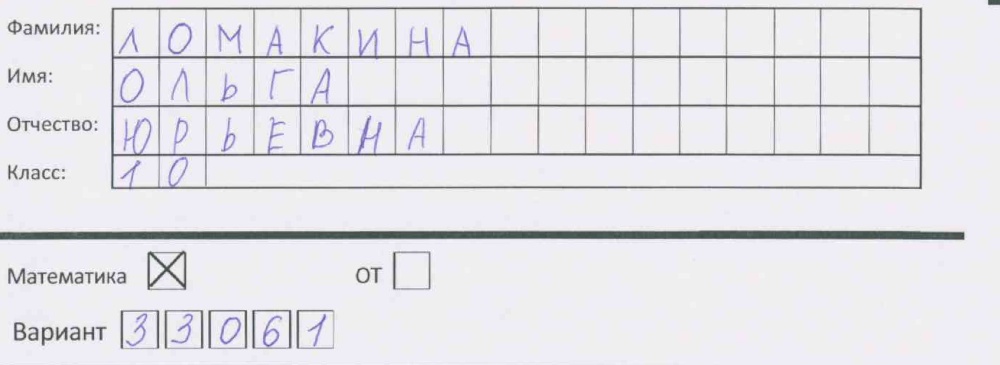 Фамилия: ЛОМАКИНА
Имя: ОЛЬГА
Отчество: ЮРЬЕВНА
Класс: 10
Математика ☒ ОТ ☐
Вариант 33061